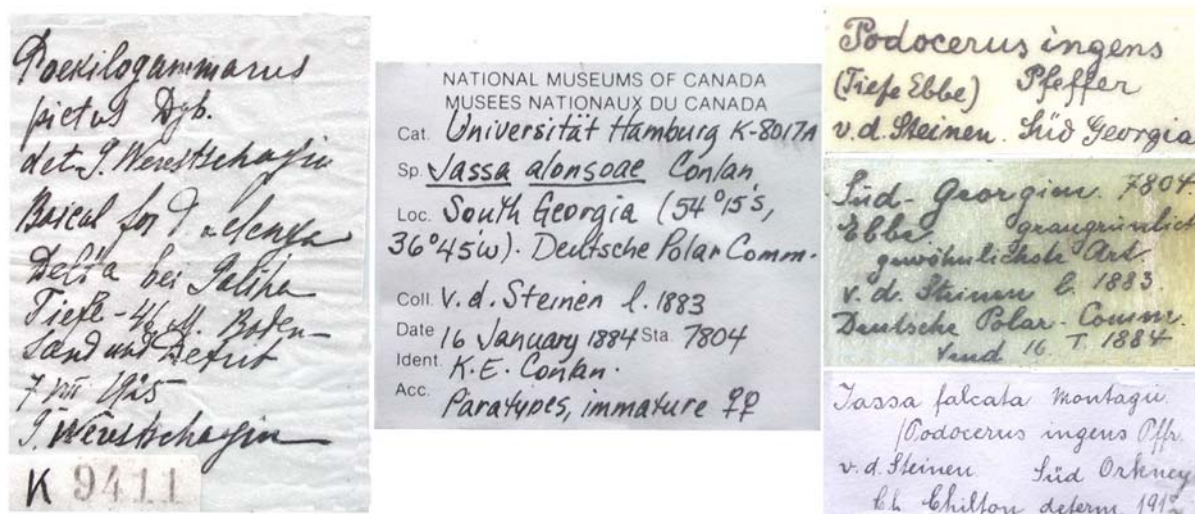 Poekilogammarus
pictus Dyb.
det. G. Werestschagin
Baical for d
Delta bei
Tiefe - 46 M. Boden -
Sand und Detrit
7 VIII 1925
G. Werestschagin
K 9411
NATIONAL MUSEUMS OF CANADA
MUSEES NATIONAUX DU CANADA
Cat. Universität Hamburg K-8017A
Sp. Jassa alonsoae Conlan
Loc. South Georgia (54°15's,
36°45'w). Deutsche Polar Comm.
Coll. V. d. Steinen l. 1883
Date 16 January 1884 Sta. 7804
Ident. K.E. Conlan.
Acc. Paratypes, immature ♀♀
Podocerus ingens
(Tiefe Ebbe) Pfeffer
v. d. Steinen. Süd Georgia
Süd-Georgien. 7804.
Ebbe. graugrünlich
gewöhnlichste Art
v. d. Steinen l. 1883.
Deutsche Polar-Comm.
vend 16. I. 1884
Jassa falcata Montagu.
/Podocerus ingens Pffr.
v. d. Steinen Süd Orkney
Ch. Chilton determ. 1912